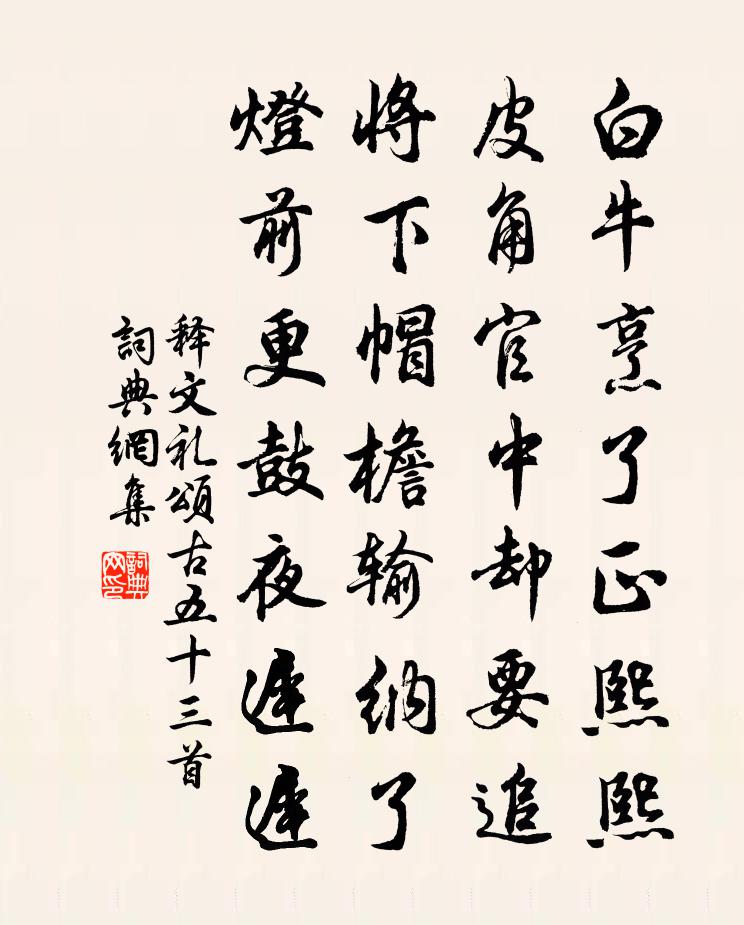 白牛烹了正熙熙
皮角官中却要追
将下帽檐输纳了
燈前更鼓夜遲遲
释文礼頌古五十三首
詞典網集
詞典網印